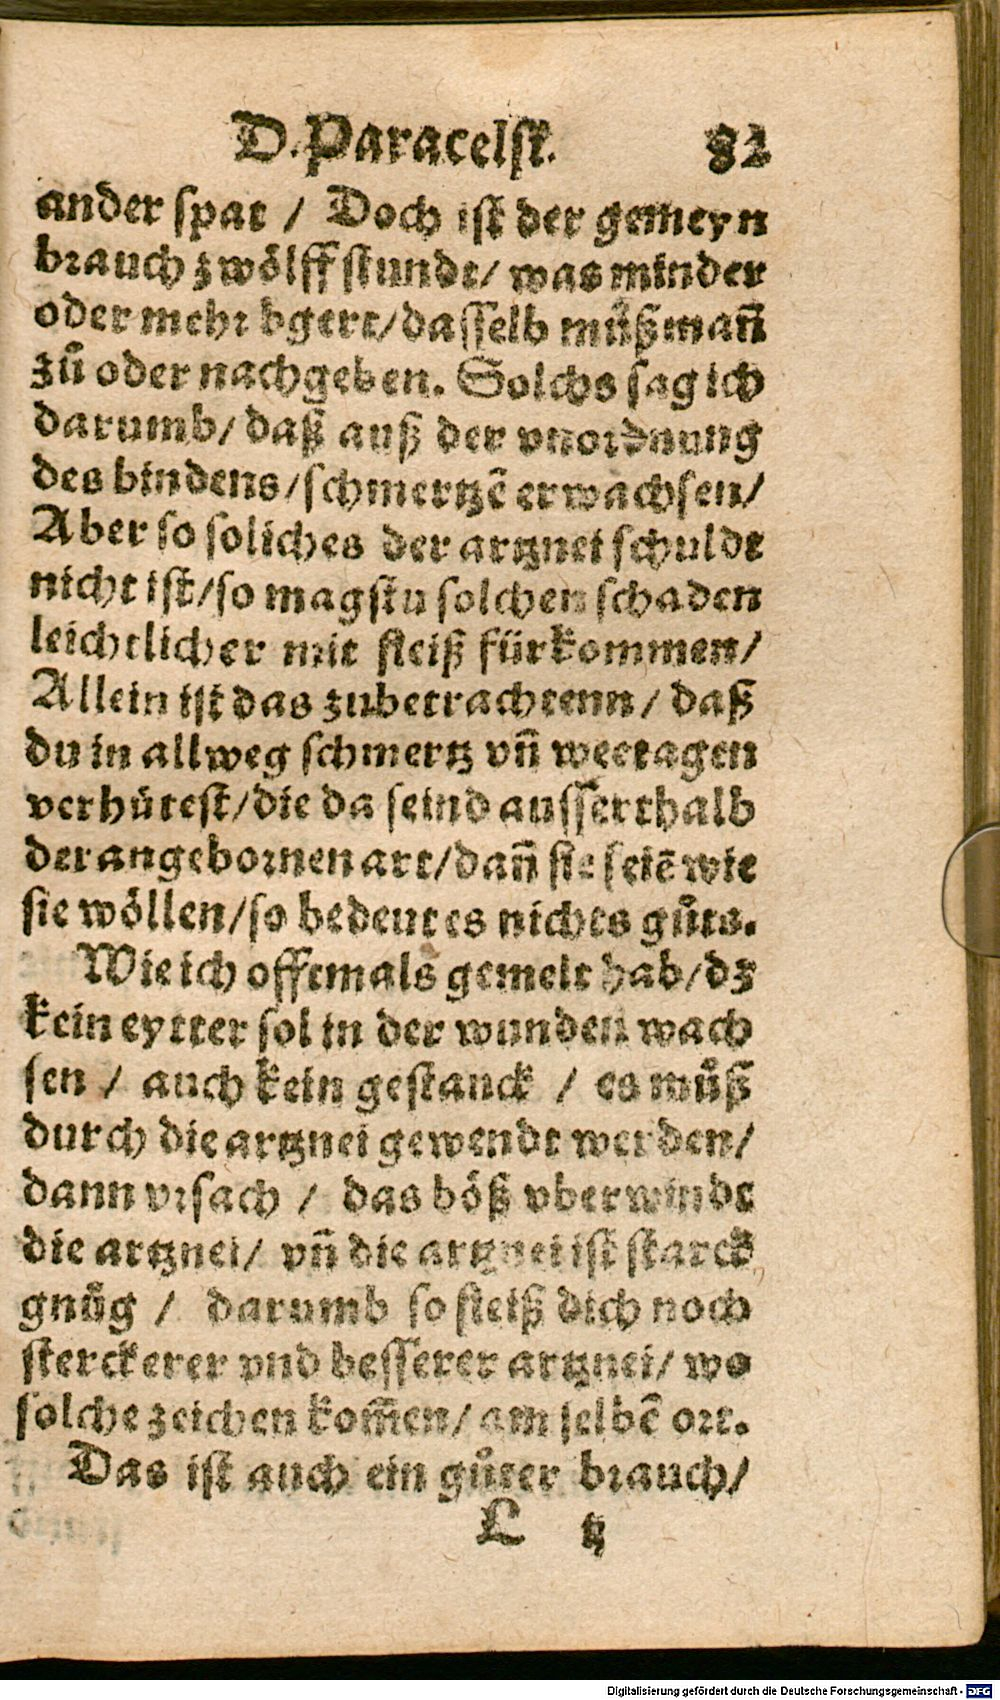 D. Paracelsi. 82
ander spat / Doch ist der gemeyn
brauch zwölff stundt/ was minder
oder mehr bgert/dasselb můßmañ
zů oder nachgeben. Solchs sag ich
darumb/ daß auß der vnordnung
des bindens/schmertzẽ erwachsen/
Aber so soliches der artznei schuldt
nicht ist/so magstu solchen schaden
leichtlicher mit fleiß fürkommen/
Allein ist das zubetrachtenn / daß
du in allweg schmertz vñ weetagen
verhütest/die da seind ausserthalb
der angebornen art/dañ sie seiẽ wie
sie wöllen/so bedeut es nichts gůts.
Wie ich offtmals gemelt hab/dz
kein eytter sol in der wunden wach
sen / auch kein gestanck / es můß
durch die artznei gewendt werden/
dann vrsach / das böß vberwindt
die artznei/ vñ die artznei ist starck
gnůg / darumb so fleiß dich noch
sterckerer vnd besserer artznei/ wo
solche zeichen kom̃en/ am selbẽ ort.
Das ist auch ein gůter brauch/
L ij
Digitalisierung gefördert durch die Deutsche Forschungsgemeinschaft - DFG